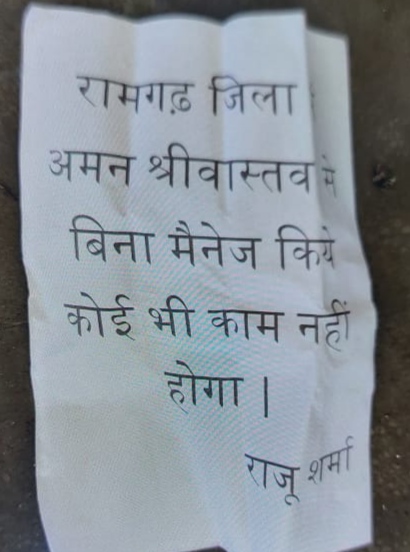 रामगढ़ जिला
अमन श्रीवास्तव से
बिना मैनेज किये
कोई भी काम नहीं
होगा |
राजू शर्मा